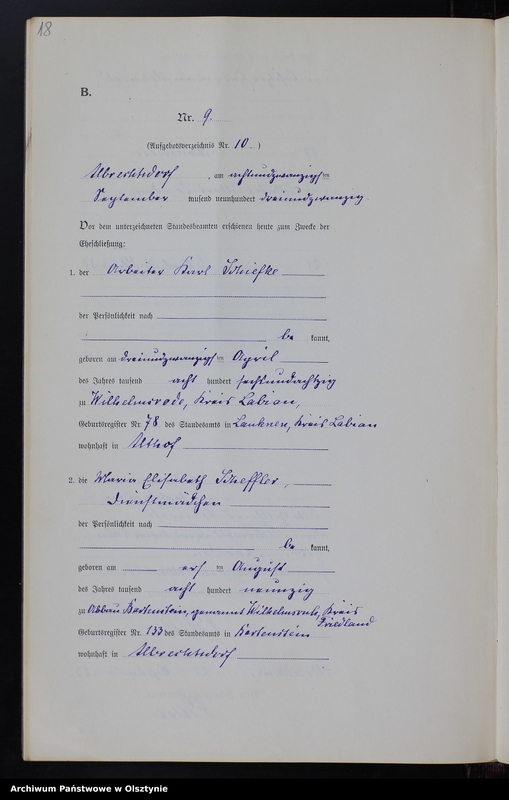 18
B.
Nr. 9.
(Aufgebotsverzeichnis Nr. 10.)
Albrechtsdorf, am achtundzwanzigsten
September tausend neunhundert dreiundzwanzig.
Vor dem unterzeichneten Standesbeamten erschienen heute zum Zwecke der
Eheschließung:
1. der Arbeiter Karl Schiefke
der Persönlichkeit nach
be kannt,
geboren am dreiundzwanzigsten April
des Jahres tausend acht hundert sechsundachtzig
zu Wilhelmsrode, Kreis Labiau,
Geburtsregister Nr. 78 des Standesamts in Lauknen, Kreis Labiau
wohnhaft in Althof
2. die Maria Elisabeth Scheffler,
Dienstmädchen
der Persönlichkeit nach
be kannt,
geboren am ersten August
des Jahres tausend acht hundert neunzig
zu Abbau Bartenstein, genannt Wilhelmsruh, Kreis
Friedland
Geburtsregister Nr. 133 des Standesamts in Bartenstein
wohnhaft in Albrechtsdorf
Archiwum Państwowe w Olsztynie